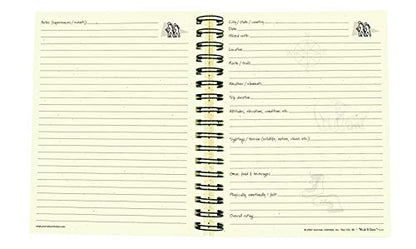 Notes (experiences / events):
City / state / country:
Date:
Hiked with:
Location:
Route / trail:
Weather / elements:
Trip duration:
Altitudes, elevation, condition, etc.:
Sightings / terrain (wildlife, nature, views, etc.):
Gear, food & beverages:
Physically, emotionally I felt:
Overall rating: